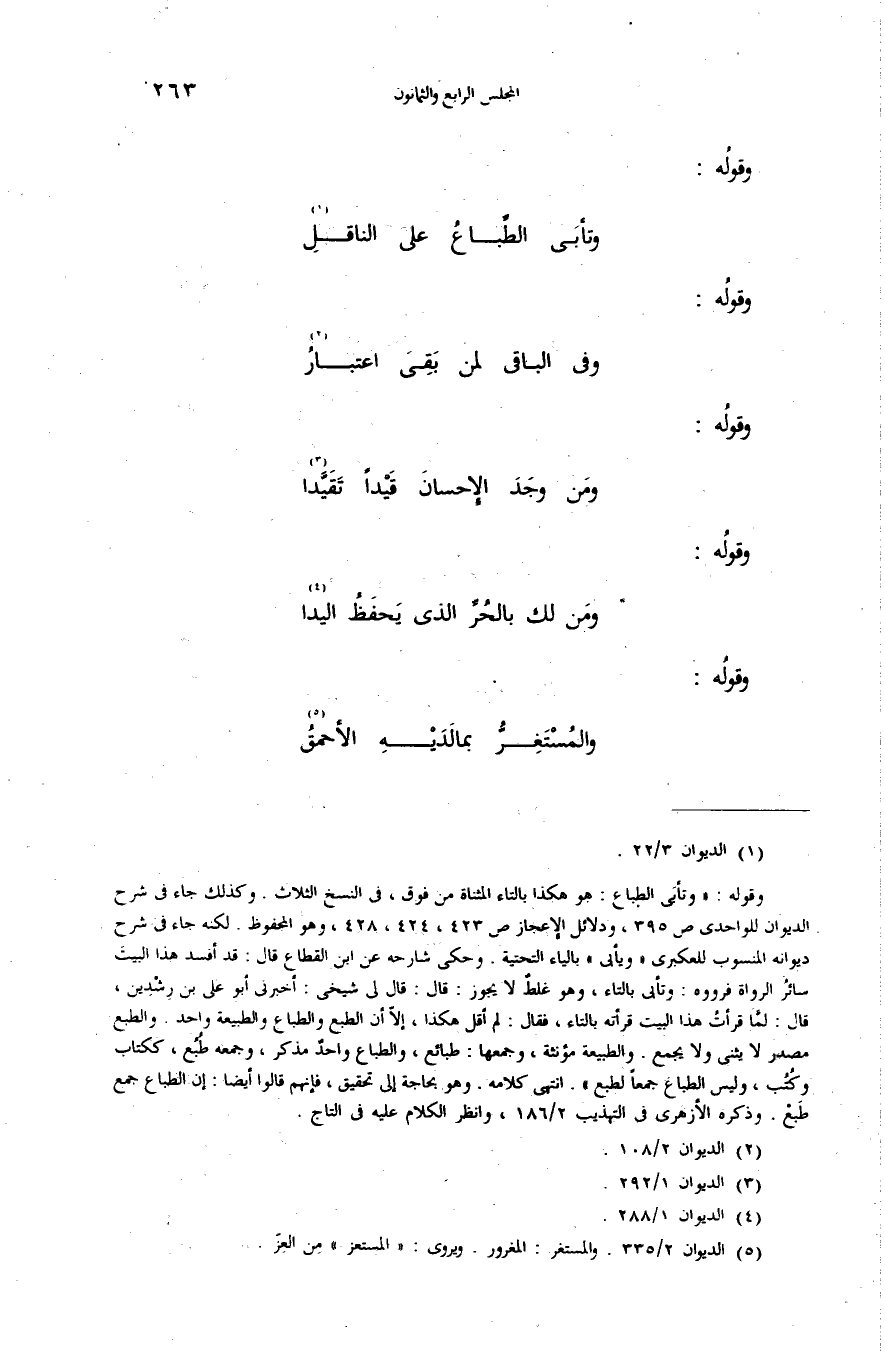 المجلس الرابع والثمانون ٢٦٣
وقولُه :
وتأبَـى الطِّبـــاعُ على الناقـــلِ (١)
وقولُه :
وفى البـاقى لمن بَقِىَ اعتبـــارُ (٢)
وقولُه :
ومَن وجَدَ الإحسانَ قَيْداً تَقَيَّدا (٣)
وقولُه :
ومَن لك بالحُرِّ الذى يَحفَظُ اليدا (٤)
وقولُه :
والمُسْتَغِـــرُّ بمالَدَيْـــهِ الأحمقُ (٥)
(١) الديوان ٢٢/٣ .
وقوله : « وتأبَى الطباع : هو هكذا بالتاء المثناة من فوق ، فى النسخ الثلاث . وكذلك جاء فى شرح
الديوان للواحدى ص ٣٩٥ ، ودلائل الإعجاز ص ٤٢٣ ، ٤٢٤ ، ٤٢٨ ، وهو المحفوظ . لكنه جاء فى شرح
ديوانه المنسوب للعكبرى « ويأبى » بالياء التحتية . وحكى شارحه عن ابن القطاع قال : قد أفسد هذا البيتَ
سائرُ الرواة فرووه : وتأبى بالتاء ، وهو غلطٌ لا يجوز : قال : قال لى شيخى : أخبرنى أبو على بن رِشْدِين ،
قال : لمَّا قرأتُ هذا البيت قرأته بالتاء ، فقال : لم أقل هكذا ، إلاّ أن الطبع والطباع والطبيعة واحد . والطبع
مصدر لا يثنى ولا يجمع . والطبيعة مؤنثة ، وجمعها : طبائع ، والطباع واحدٌ مذكر ، وجمعه طُبُع ، ككتاب
وكُتُب ، وليس الطباعُ جمعاً لطبع » . انتهى كلامه . وهو بحاجة إلى تحقيق ، فإنهم قالوا أيضا : إن الطباع جمع
طَبعْ . وذكره الأزهرى فى التهذيب ١٨٦/٢ ، وانظر الكلام عليه فى التاج .
(٢) الديوان ١٠٨/٢ .
(٣) الديوان ٢٩٢/١ .
(٤) الديوان ٢٨٨/١ .
(٥) الديوان ٣٣٥/٢ . والمستغر : المغرور . ويروى : « المستعز » مِن العِزّ .